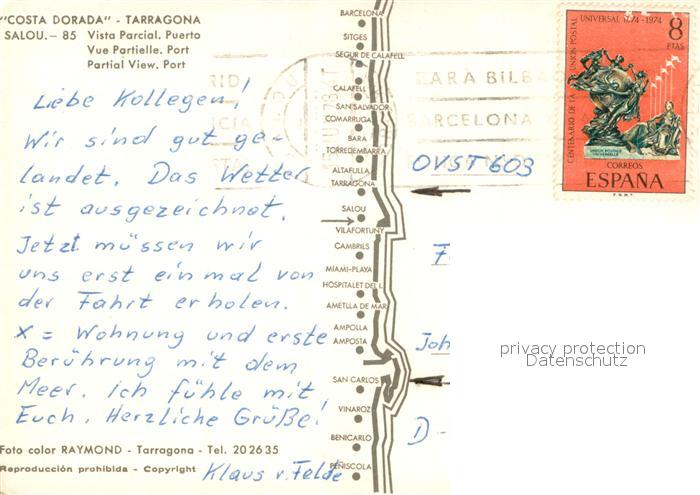 "COSTA DORADA" - TARRAGONA
SALOU. - 85 Vista Parcial. Puerto
Vue Partielle. Port
Partial View. Port
Liebe Kollegen!
Wir sind gut ge-
landet. Das Wetter
ist ausgezeichnet.
Jetzt müssen wir
uns erst einmal von
der Fahrt erholen.
X = Wohnung und erste
Berührung mit dem
Meer. ich fühle mit
Euch. Herzliche Grüße!
Klaus v. Felde
Foto color RAYMOND - Tarragona - Tel. 20 26 35
Reproducción prohibida - Copyright
BARCELONA
SITGES
SEGUR DE CALAFELL
CALAFELL
SAN SALVADOR
COMARRUGA
BARA
TORREDEMBARRA
ALTAFULLA
TARRAGONA
SALOU
VILAFORTUNY
CAMBRILS
MIAMI-PLAYA
HOSPITALET DEL I.
AMETLLA DE MAR
AMPOLLA
AMPOSTA
SAN CARLOS
VINAROZ
BENICARLO
PEÑISCOLA
ZARA BILBAO
BARCELONA
OVST 603
F
Joh
D-
CENTENARIO DE LA UNION POSTAL UNIVERSAL 1874-1974
8
PTAS
CORREOS
ESPAÑA
privacy protection
Datenschutz